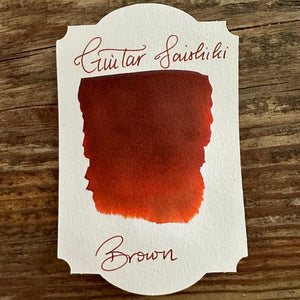 Guitar Saishiki
Brown